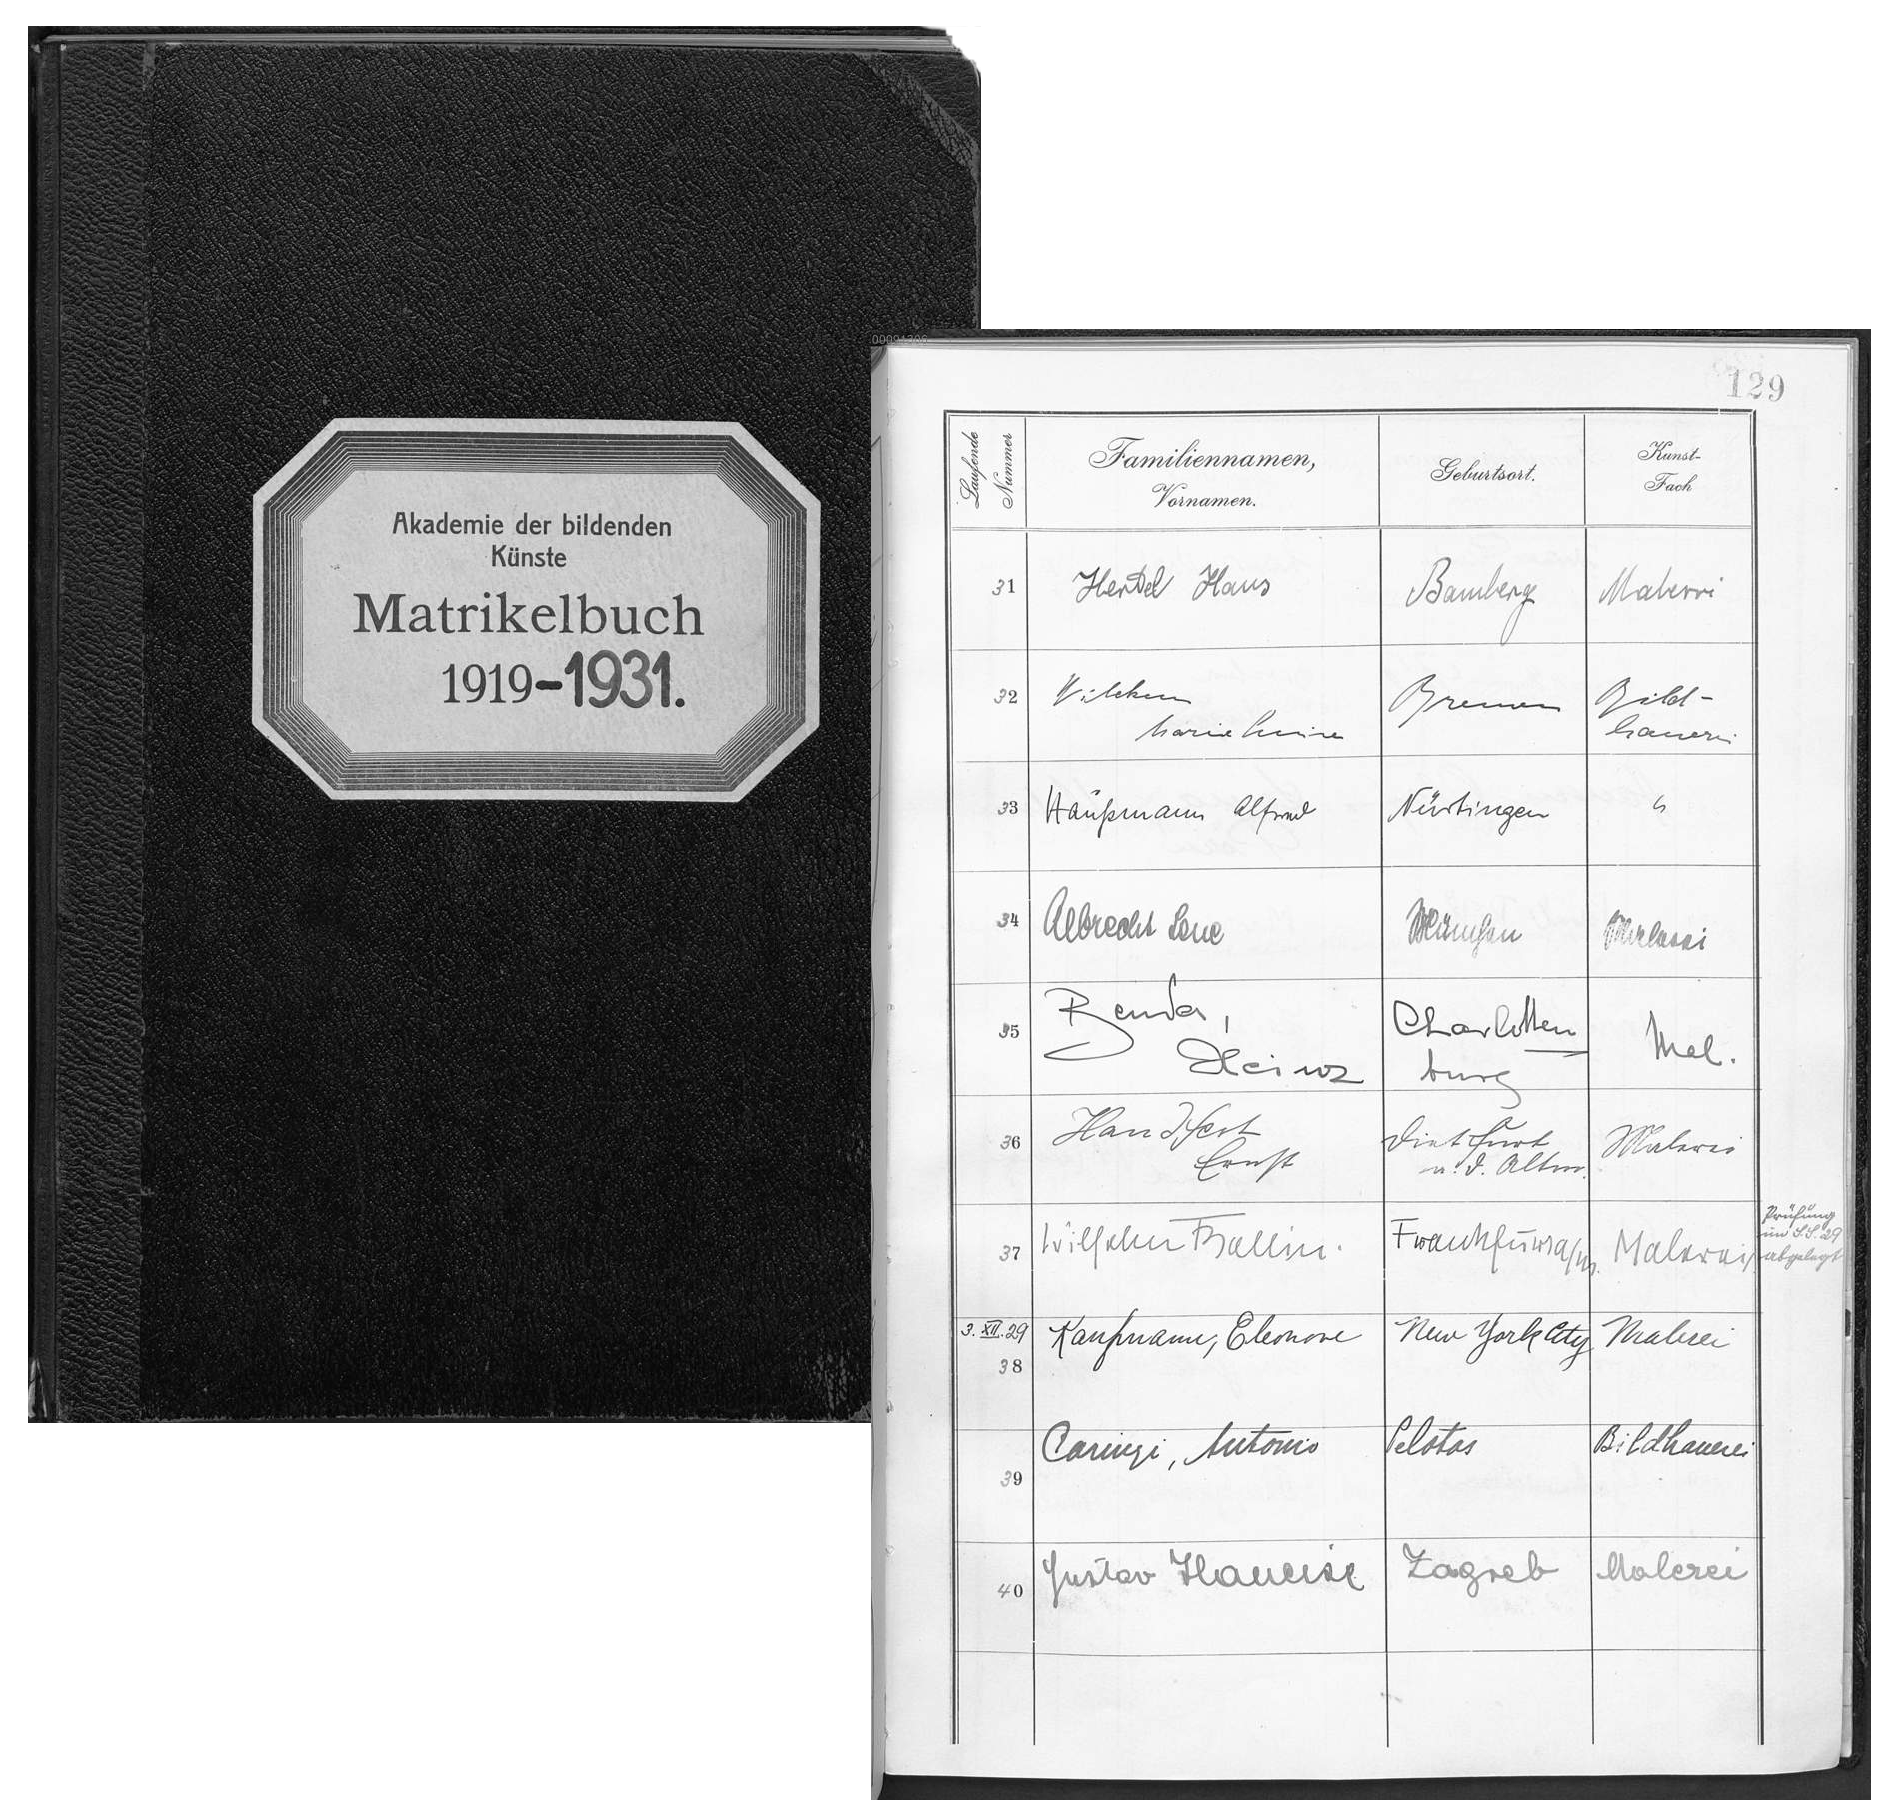 Akademie der bildenden
Künste
Matrikelbuch
1919-1931.
129
Laufende
Nummer
Familiennamen,
Vornamen.
Geburtsort.
Kunst-
Fach
31 Hertel Hans Bamberg Malerei
32 Wilckens Bremen Bild-
Marie Luise hauerei
33 Häußmann Alfred Nürtingen "
34 Albrecht Lene München Malerei
35 Bender, Charlotten
Heinz burg Mal.
36 Handfest Dietfurt Malerei
Ernst a. d. Altm.
37 Wilhelm Ballin. Frankfurt a/M. Malerei
Prüfung
im S.S. 29
abgelegt
3. XII. 29 Kaufmann, Eleonore New York City Malerei
38
Caringi, Antonio Pelotas Bildhauerei
39
40 Gustav Zagreb Malerei